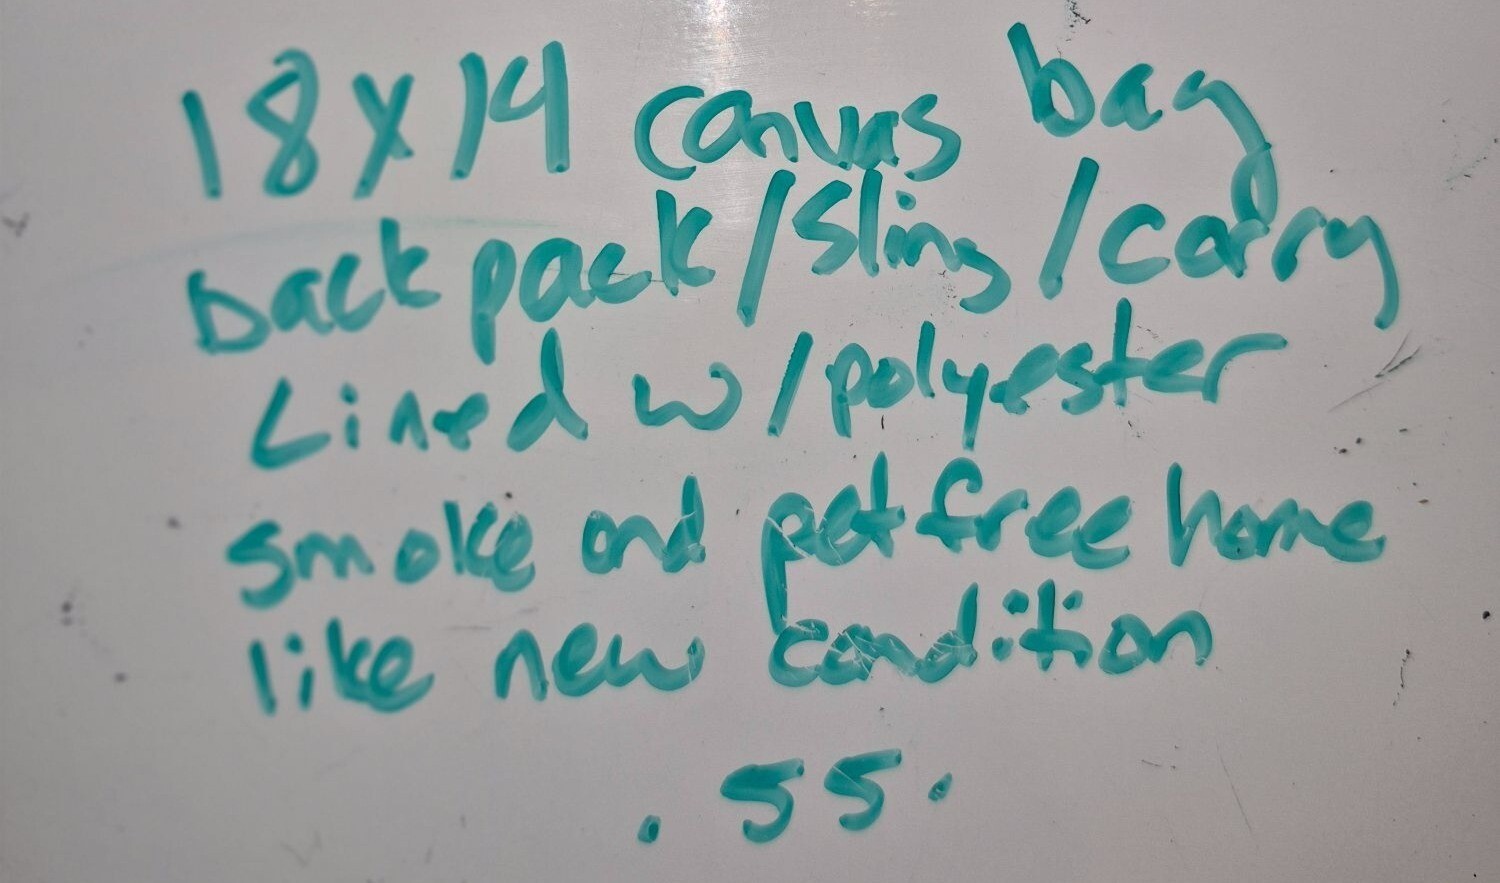 18 x 14 canvas bag
backpack/sling/carry
Lined w/polyester
smoke and pet free home
like new condition
. 55 .